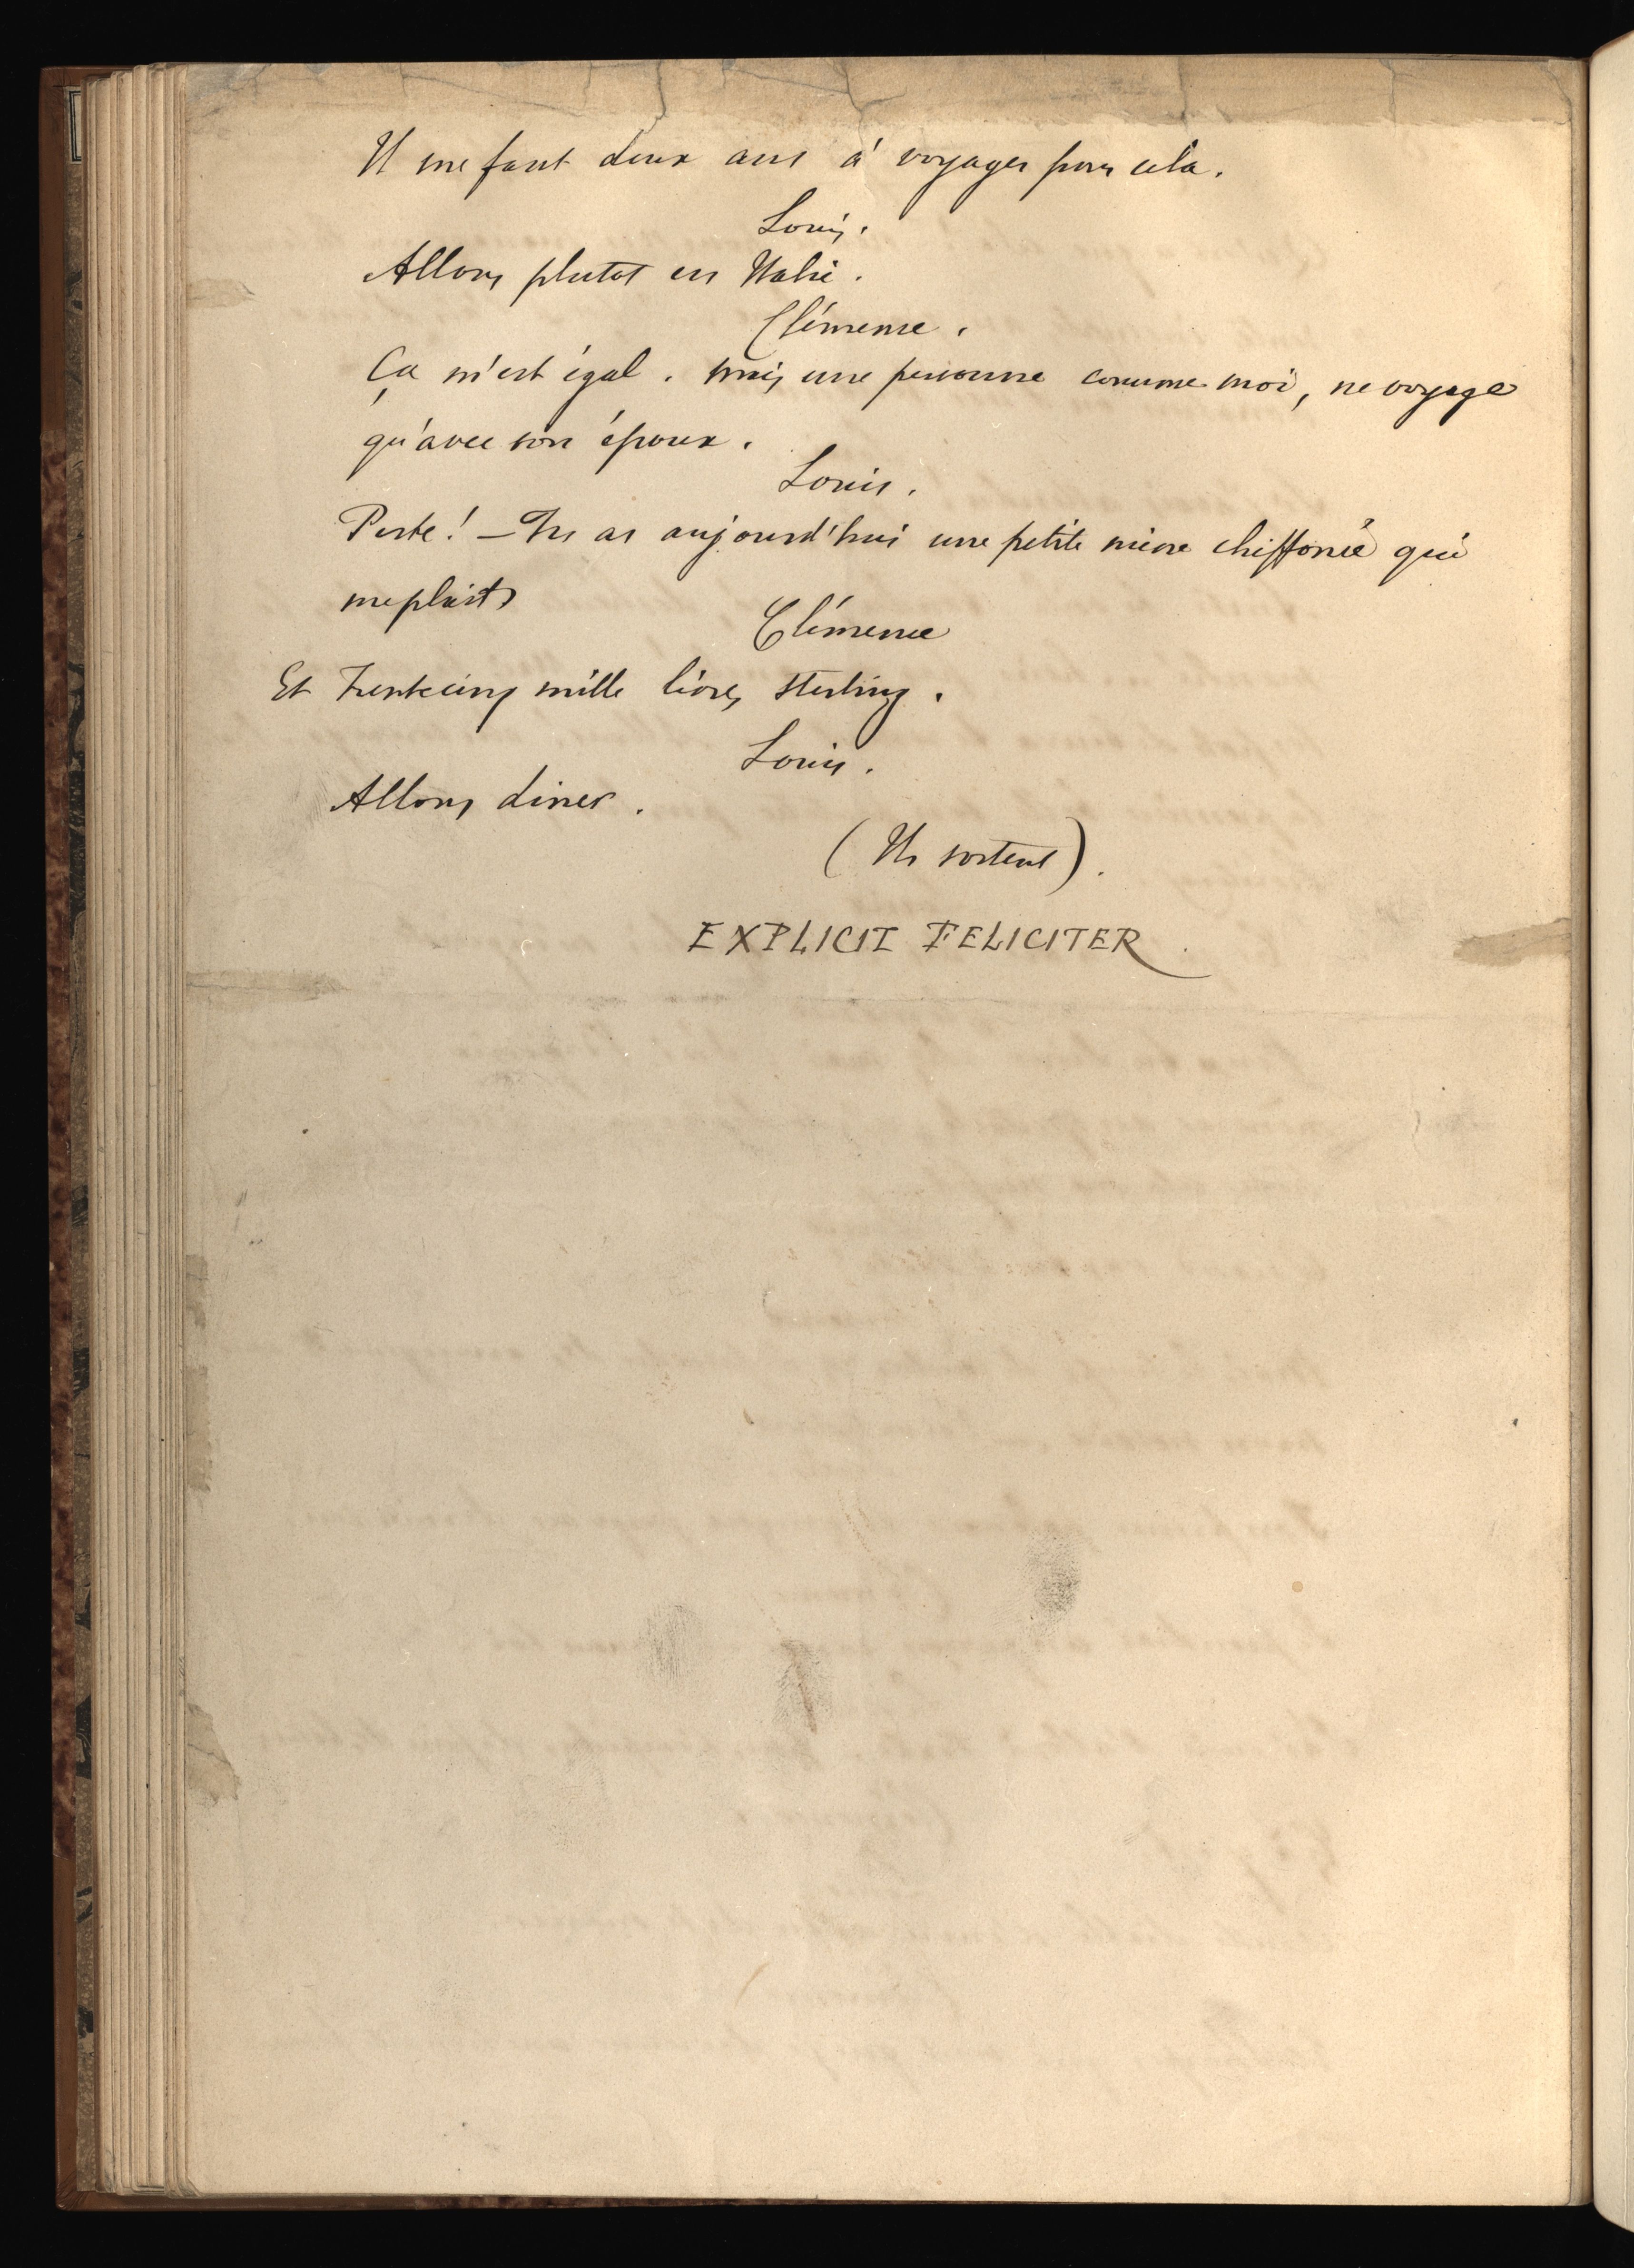 Il me faut deux ans à voyager pour cela.
Louis.
Allons plutot en Italie.
Clémence.
Ça m'est égal. mais une personne comme moi, ne voyage
qu'avec son époux.
Louis.
Peste! — Tu as aujourd'hui une petite mine chiffonée qui
me plait
Clémence
Et Trentecinq mille livres sterling.
Louis.
Allons diner.
(Ils sortent).
EXPLICIT FELICITER.